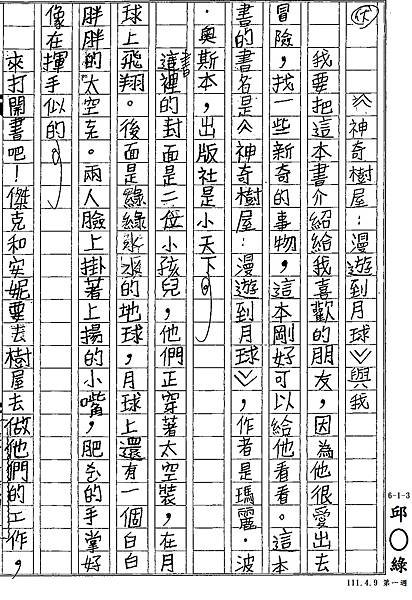 《神奇樹屋:漫遊到月球》與我
我要把這本書介紹給我喜歡的朋友,因為他很愛出去
冒險,找一些新奇的事物,這本剛好可以給他看看。這本
書的書名是《神奇樹屋:漫遊到月球》,作者是瑪麗·波
·奧斯本,出版社是小天下。
這書裡的封面是二位小孩兒,他們正穿著太空裝,在月
球上飛翔。後面是綠綠水水的地球,月球上還有一個白白
胖胖的太空。兩人臉上掛著上揚的小嘴,肥的手掌好
像在揮手似的。
來打開書吧!傑克和安妮要去樹屋去做他們的工作,
6-1-3
邱○綠
111.4.9 第一週